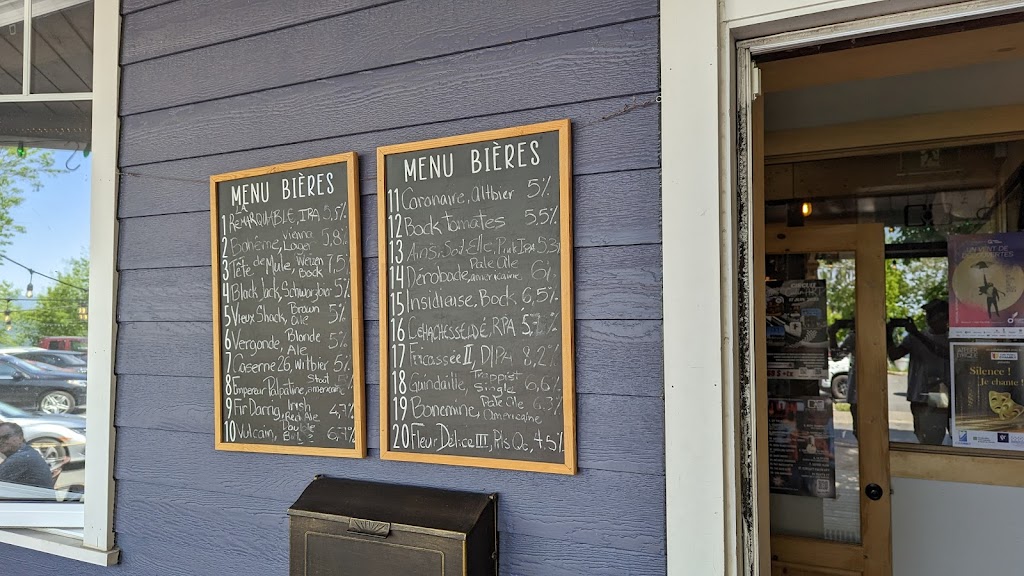 MENU BIÈRES
1 REMARQUABLE, IPA 5,5%
2 Bohème, vienna Lage 5,8%
3 Tête de Mule, Weizen Bock 7,5%
4 Black Jack, Schwarzbier 5%
5 Vieux Shack, Brown Ale 5%
6 Vergonde, Blonde Ale 5%
7 Caserne 26, Witbier 5%
8 Empereur Palpatine, Stout americain
9 Fir Darrig, Irish Red Ale 4,7%
10 Vulcain, Double 6,7%
MENU BIÈRES
11 Coronaire, Altbier 5%
12 Bock tomates 5.5%
13 Ainsi Soit-Elle, Pale
14 Dérobade, Pale Ale americaine 6%
15 Insidieuse, Bock 6,5%
16 RPA
17 Fricassée II, DIPA 8,2%
18 Guindaille, Trappist Single 6,6%
19 Bonemine, Pale Ale Americaine 6.3%
20 Fleur Délice III, Pils Qc, 4.5%
Silence !
Je chante !